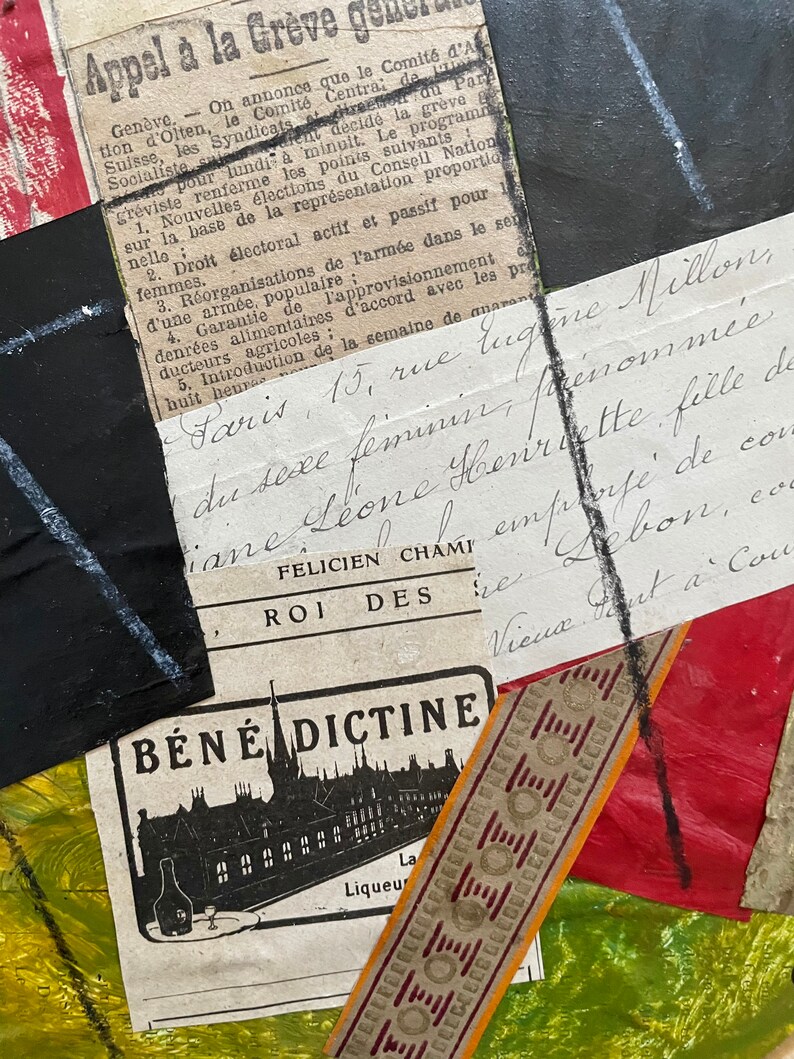 Appel à la Grève générale
Genève. — On annonce que le Comité d'A
tion d'Olten, le Comité Central de
Suisse, les Syndicats et direction du Par
Socialiste suisse décidé la grève
pour lundi à minuit. Le programm
gréviste renferme les points suivants :
1. Nouvelles élections du Conseil Nation
sur la base de la représentation proportio
nelle ;
2. Droit électoral actif et passif pour l
femmes.
3. Réorganisations de l'armée dans le sen
d'une armée populaire ;
4. Garantie de l'approvisionnement
denrées alimentaires d'accord avec les pro
ducteurs agricoles ;
5. Introduction de la semaine de quaran
huit heures
Paris, 15, rue Eugène Millon,
du sexe féminin, prénommée
iane Léone Henriette, fille de
employé de com
Lebon, cou
Vieux Pont à Cou
FELICIEN CHAM
, ROI DES
BÉNÉDICTINE
La
Liqueu